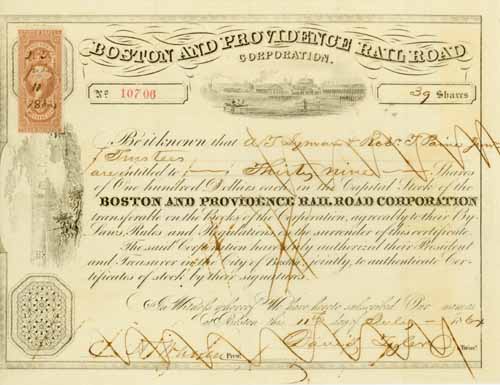 BOSTON AND PROVIDENCE RAIL ROAD
CORPORATION.
No. 10706
39 Shares
11
Be it known that A. T. Lyman & Robt. T. Paine
Trustees
are entitled to Thirty nine Shares
of One hundred Dollars each in the Capital Stock of the
BOSTON AND PROVIDENCE RAIL ROAD CORPORATION
transferable on the Books of the Corporation, agreeably to their By
Laws, Rules and Regulations, on the surrender of this certificate.
The said Corporation have duly authorized their President
and Treasurer in the City of Boston, jointly, to authenticate Cer-
tificates of stock by their signatures.
In Witness whereof We have hereto subscribed Our names
at Boston this 11th day of July 1864
Prest.
David Tyler Treasr.